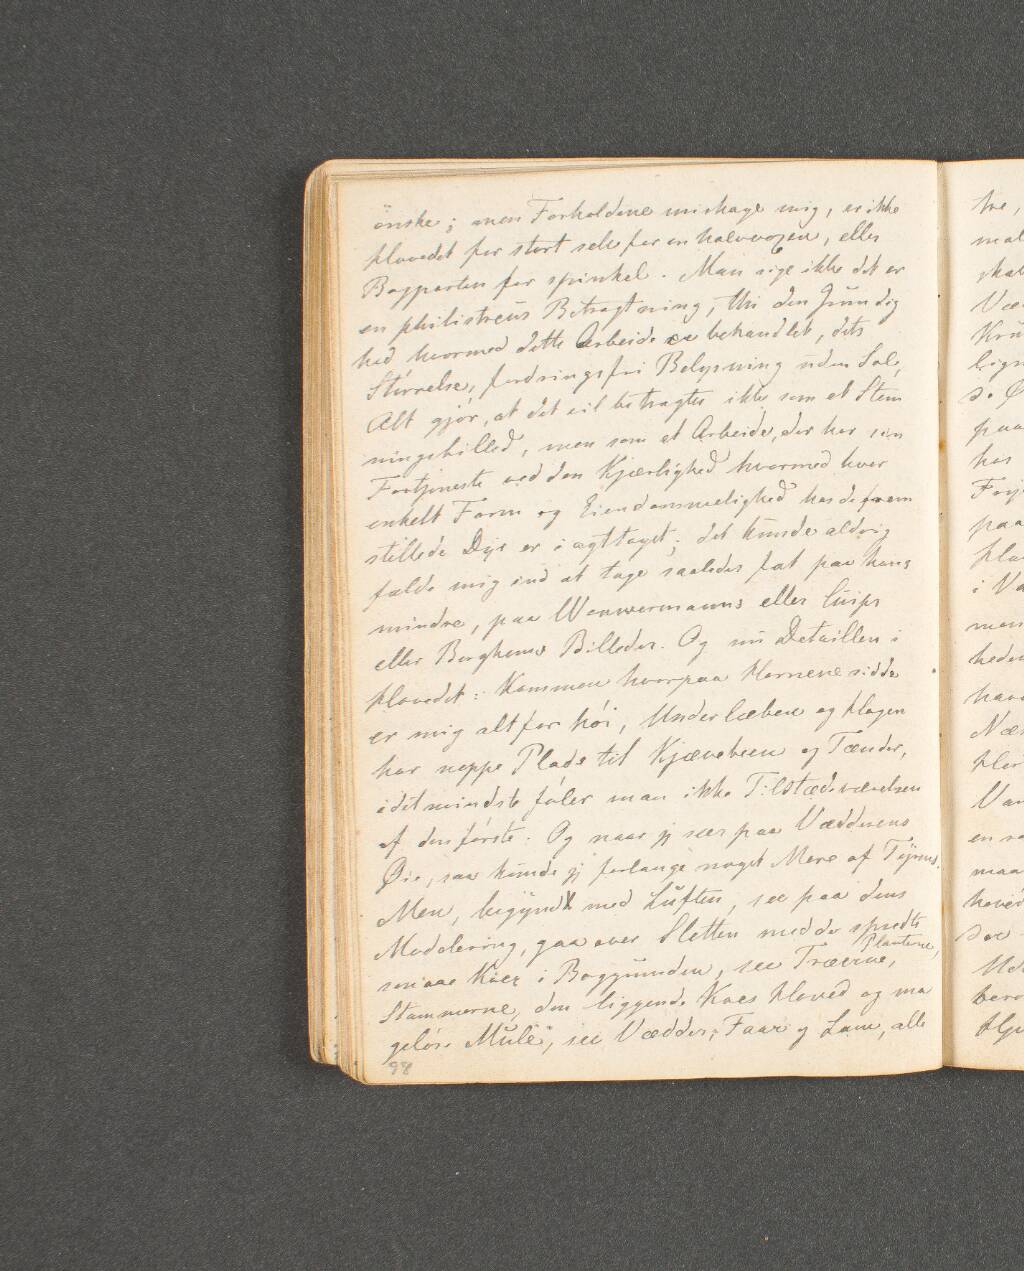 önske; men Forholdene mishage mig, er ikke
Hovedet for stort selv for en halvvoxen, eller
Bagparten for spinkel. Man sige ikke det er
en philistreüs Betragtning, thi den Grundig
hed hvormed dette Arbeide er behandlet, dets
Störrelse, fordringsfri Belysning uden Sol,
Alt gjör, at det vil betragtes ikke som et Stem
ningsbilled, men som et Arbeide, der har sin
Fortjeneste ved den Kjærlighed hvormed hver
enkelt Form og Eiendommelighed hos de frem
stillede Dyr er iagttaget; det kunde aldrig
falde mig ind at tage saaledes fat paa hans
mindre, paa Wouwermanns eller Cuips
eller Berghems Billeder. Og nu Detaillen i
Hovedet: Kammen hvorpaa Hornene sidde
er mig altfor höi, Underlæben og Hagen
har neppe Plads til Kjæveben og Tænder,
idetmindste föler man ikke Tilstædeværelsen
af den förste. Og naar jeg seer paa Vædderens
Øie, saa kunde jeg forlange noget Mere af Tyrens.
Men, begynd med Luften, see paa dens
Modelering, gaa over Sletten med de spredte
smaae Köer i Baggrunden, see Træerne, Planterne,
Stammerne, den liggende Koes Hoved og ma
gelöse Mule, see Vædder, Faar og Lam, alle
98
tre,
mal
skal
Væ
Kru
lign
s. Ø
paa
has
Forj
paa
Hov
i Va
men
heden
have
Næs
Her
Van
en sa
maa
hoved
see